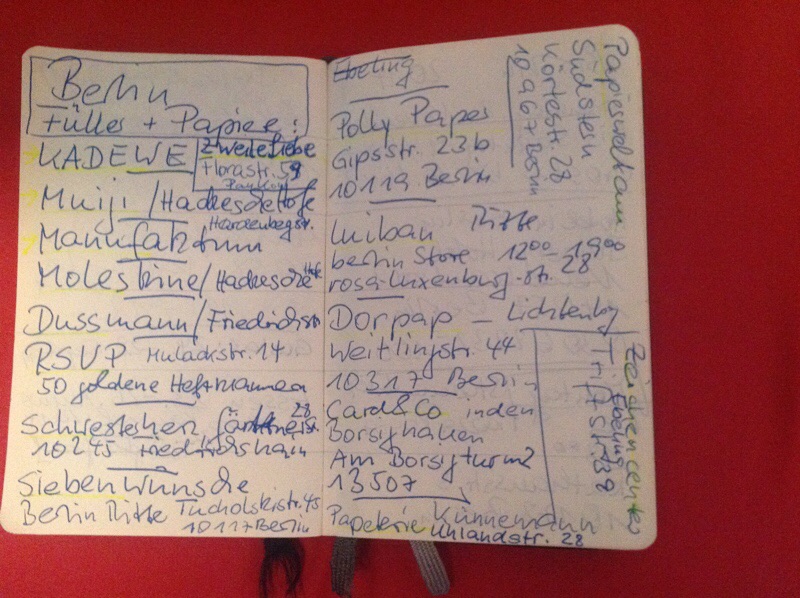 Berlin
Füller + Papier:
KADEWE
Zweiteliebe
Florastr. 59
Pankow
Muiji / Hackesche Höfe
Hardenbergstr.
Manufaktum
Moleskine / Hackesche Höfe
Dussmann / Friedrichstr
RSVP Mulackstr. 14
50 goldene Heftklammern
Schwesterherz Gärtnerstr. 28
10245 Friedrichshain
Sieben Wünsche
Berlin Mitte Tucholskistr. 45
10117 Berlin
Ebeling
Polly Paper
Gipsstr. 23b
10119 Berlin
Luiban Mitte
berlin Store 12⁰⁰ - 19⁰⁰
rosa-luxenburg-str. 28
Dorpap - Lichtenberg
Weitlingstr. 44
10317 Berlin
Card&Co in den
Borsighallen
Am Borsigturm 2
13507
Papeterie Künnemann
Uhlandstr. 28
Papierweltraum
Südstern
Körtestr. 28
10967 Berlin
Zeichencenter
Ebeling